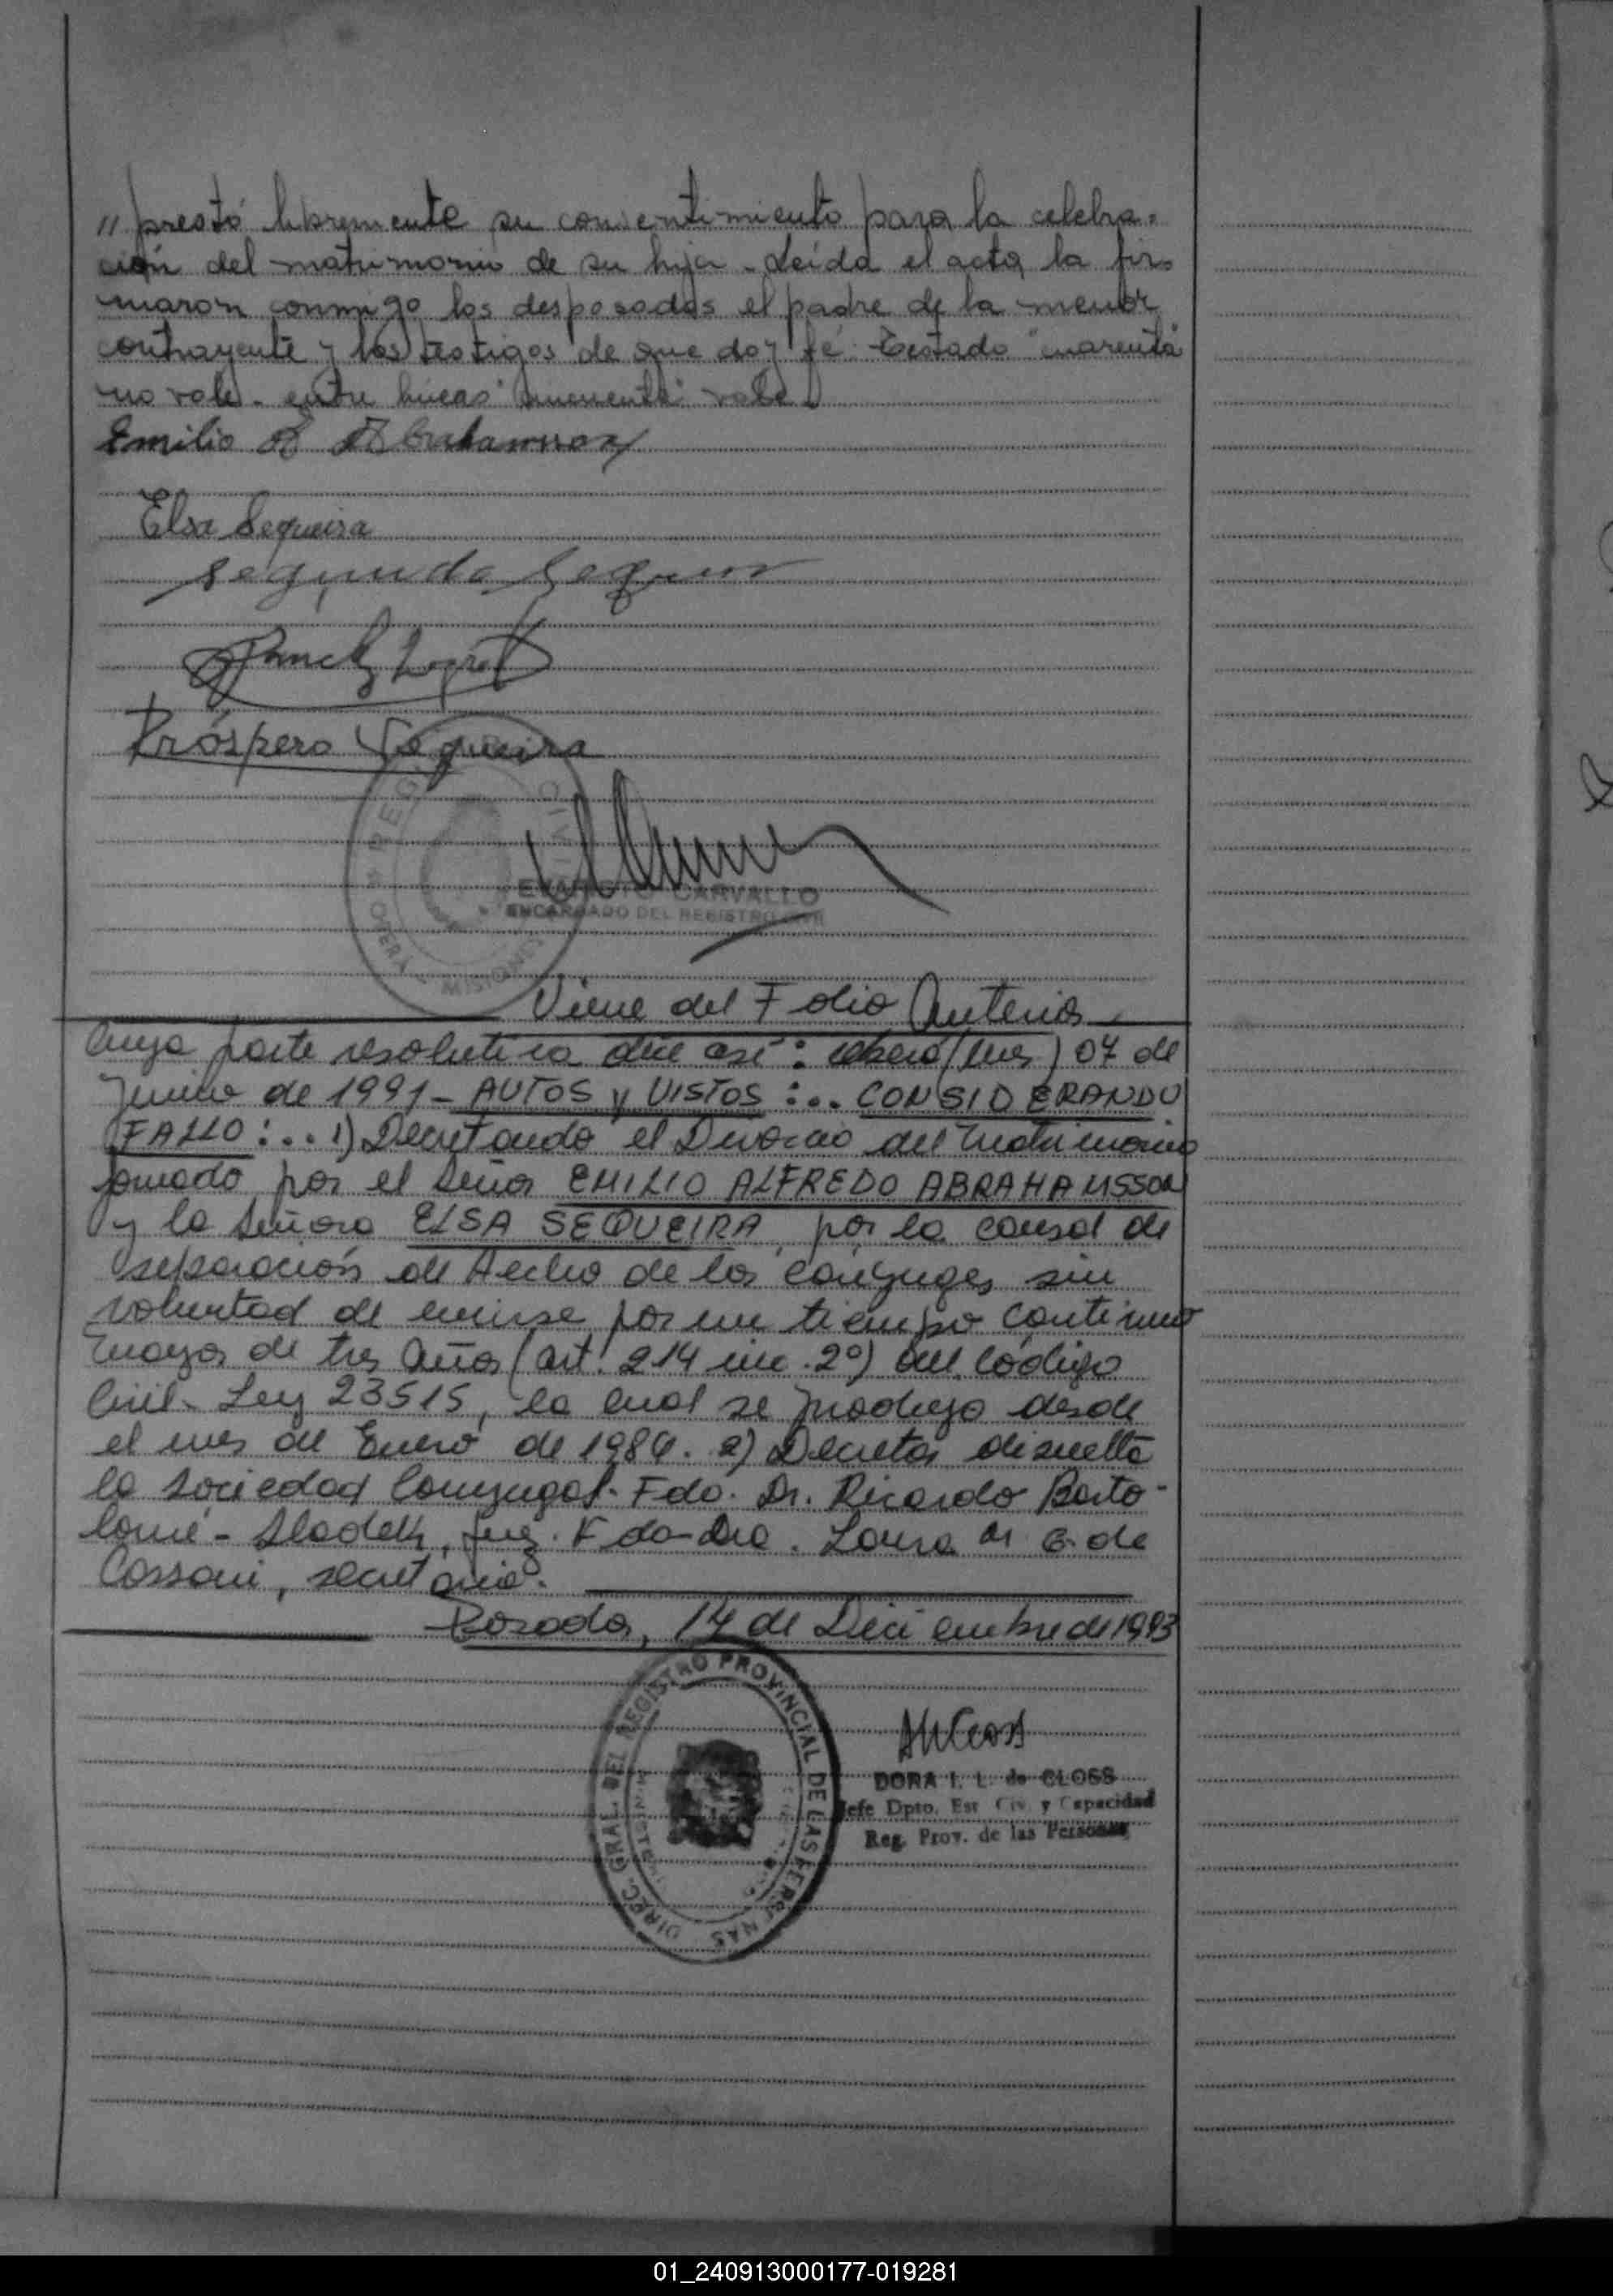 // prestó libremente su consentimiento para la celebra=
ción del matrimonio de su hija - Leída el acta, la fir=
maron conmigo los desposados el padre de la menor
contrayente y los testigos de que doy fé. Testado "cuarenta"
no vale - entre lineas "cincuenta" vale
Emilio A Abrahamsson
Elsa Sequeira
Segundo Sequeira
Próspero Sequeira
REG CIVIL
OBERA MISIONES
EVARISTO CARVALLO
ENCARGADO DEL REGISTRO CIVIL
Viene del Folio Anterior
Cuya parte resolutiva dice así: Oberá (Mnes) 07 de
Junio de 1991 - AUTOS y VISTOS :... CONSIDERANDO
FALLO :... 1) Decretando el Divorcio del Matrimonio
formado por el Señor EMILIO ALFREDO ABRAHAMSSON
y la Señora ELSA SEQUEIRA, por la causal de
separación de Hecho de los conyuges sin
voluntad de unirse por un tiempo continuo
mayor de tres años (art. 214 inc. 2º) del Código
Civil - Ley 23515, la cual se produjo desde
el mes de Enero de 1984. 2) Decretar disuelta
la Sociedad Conyugal - Fdo. Dr. Ricardo Barto-
lomé - Juez. Fdo - Dra. Laura de
Cassoni, secretaria.
Posadas, 14 de Diciembre de 1993
DIREC. GRAL. DEL REGISTRO PROVINCIAL DE LAS PERSONAS
DORA I. L. de CLOSS
Jefe Dpto. Est Civ. y Capacidad
Reg. Prov. de las Personas
01_240913000177-019281